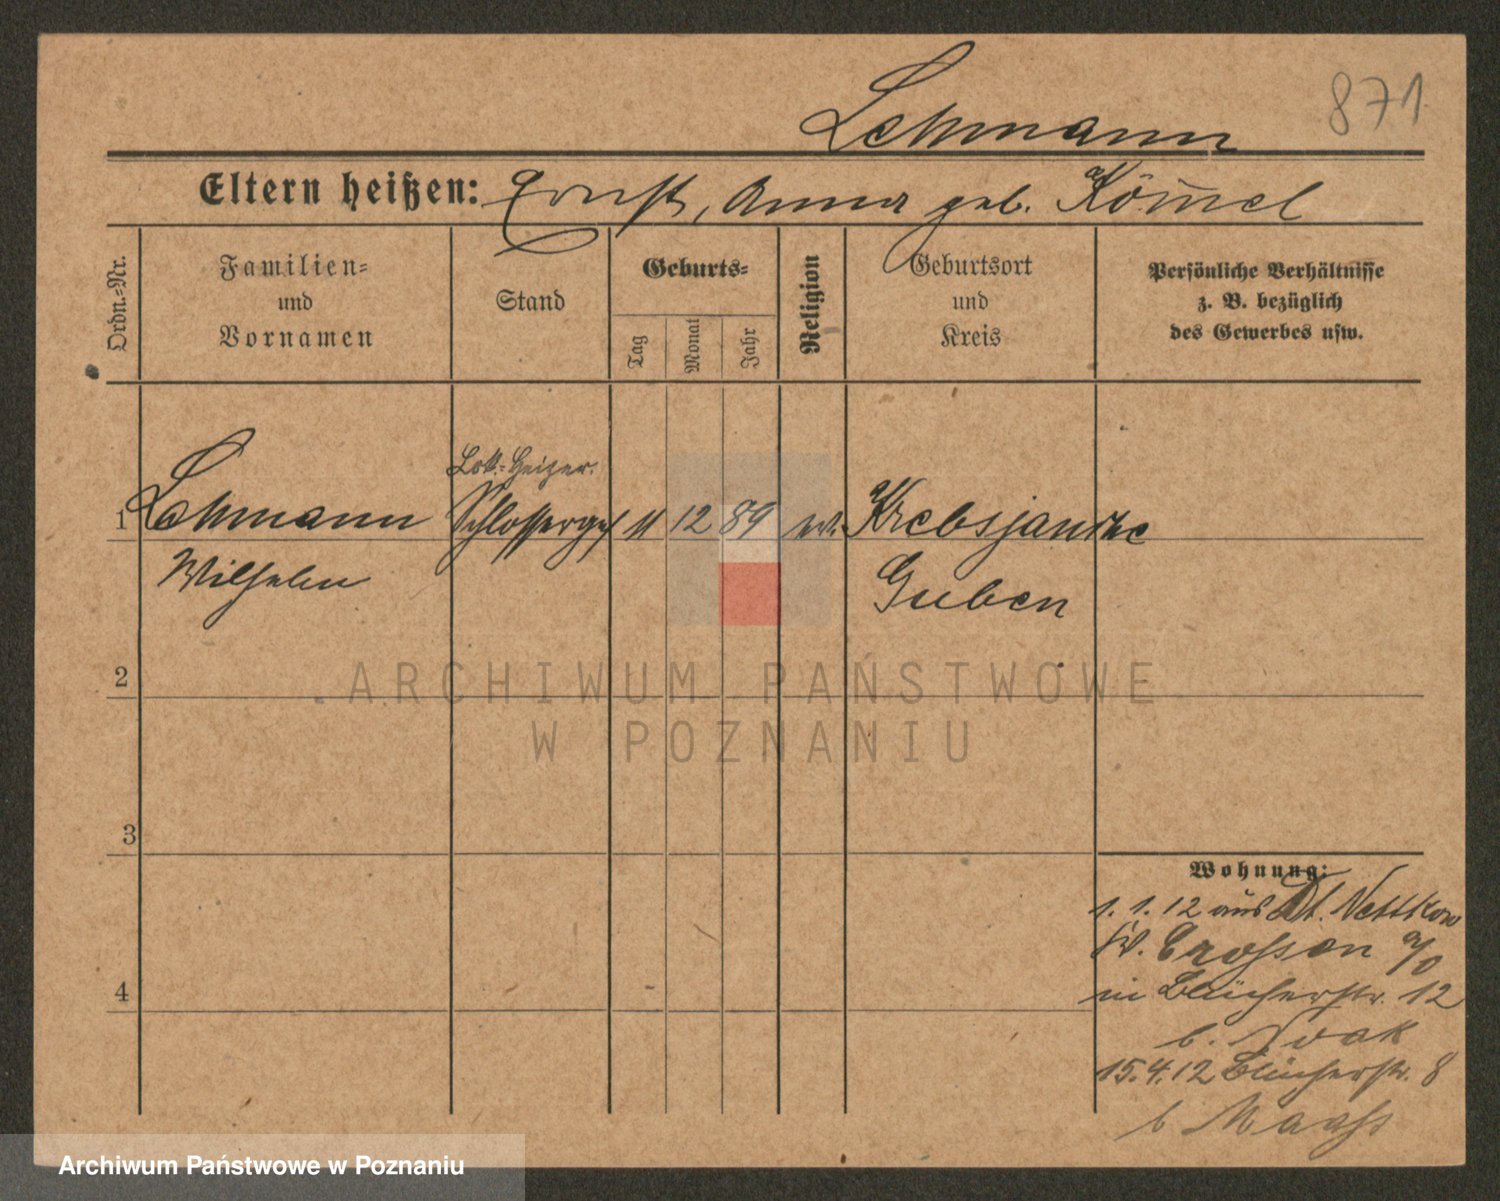 871
Lehmann
Eltern heißen: Ernst, Anna geb.
Ordn.=Nr.
Familien=
und
Vornamen
Stand
Geburts=
Tag
Monat
Jahr
Religion
Geburtsort
und
Kreis
Persönliche Verhältnisse
z. B. bezüglich
des Gewerbes usw.
Lok.=Heizer.
1 Lehmann Schlosserges 11 12 89 ev. Krebsjauche
Wilhelm Guben
2
3
4
Wohnung:
1. 1. 12 aus Dt. Nettkow
Kr. Crossen a/O
in Blücherstr. 12
b. Noak
15.4.12 Blücherstr. 8
b Maass
ARCHIWUM PAŃSTWOWE
W POZNANIU
Archiwum Państwowe w Poznaniu